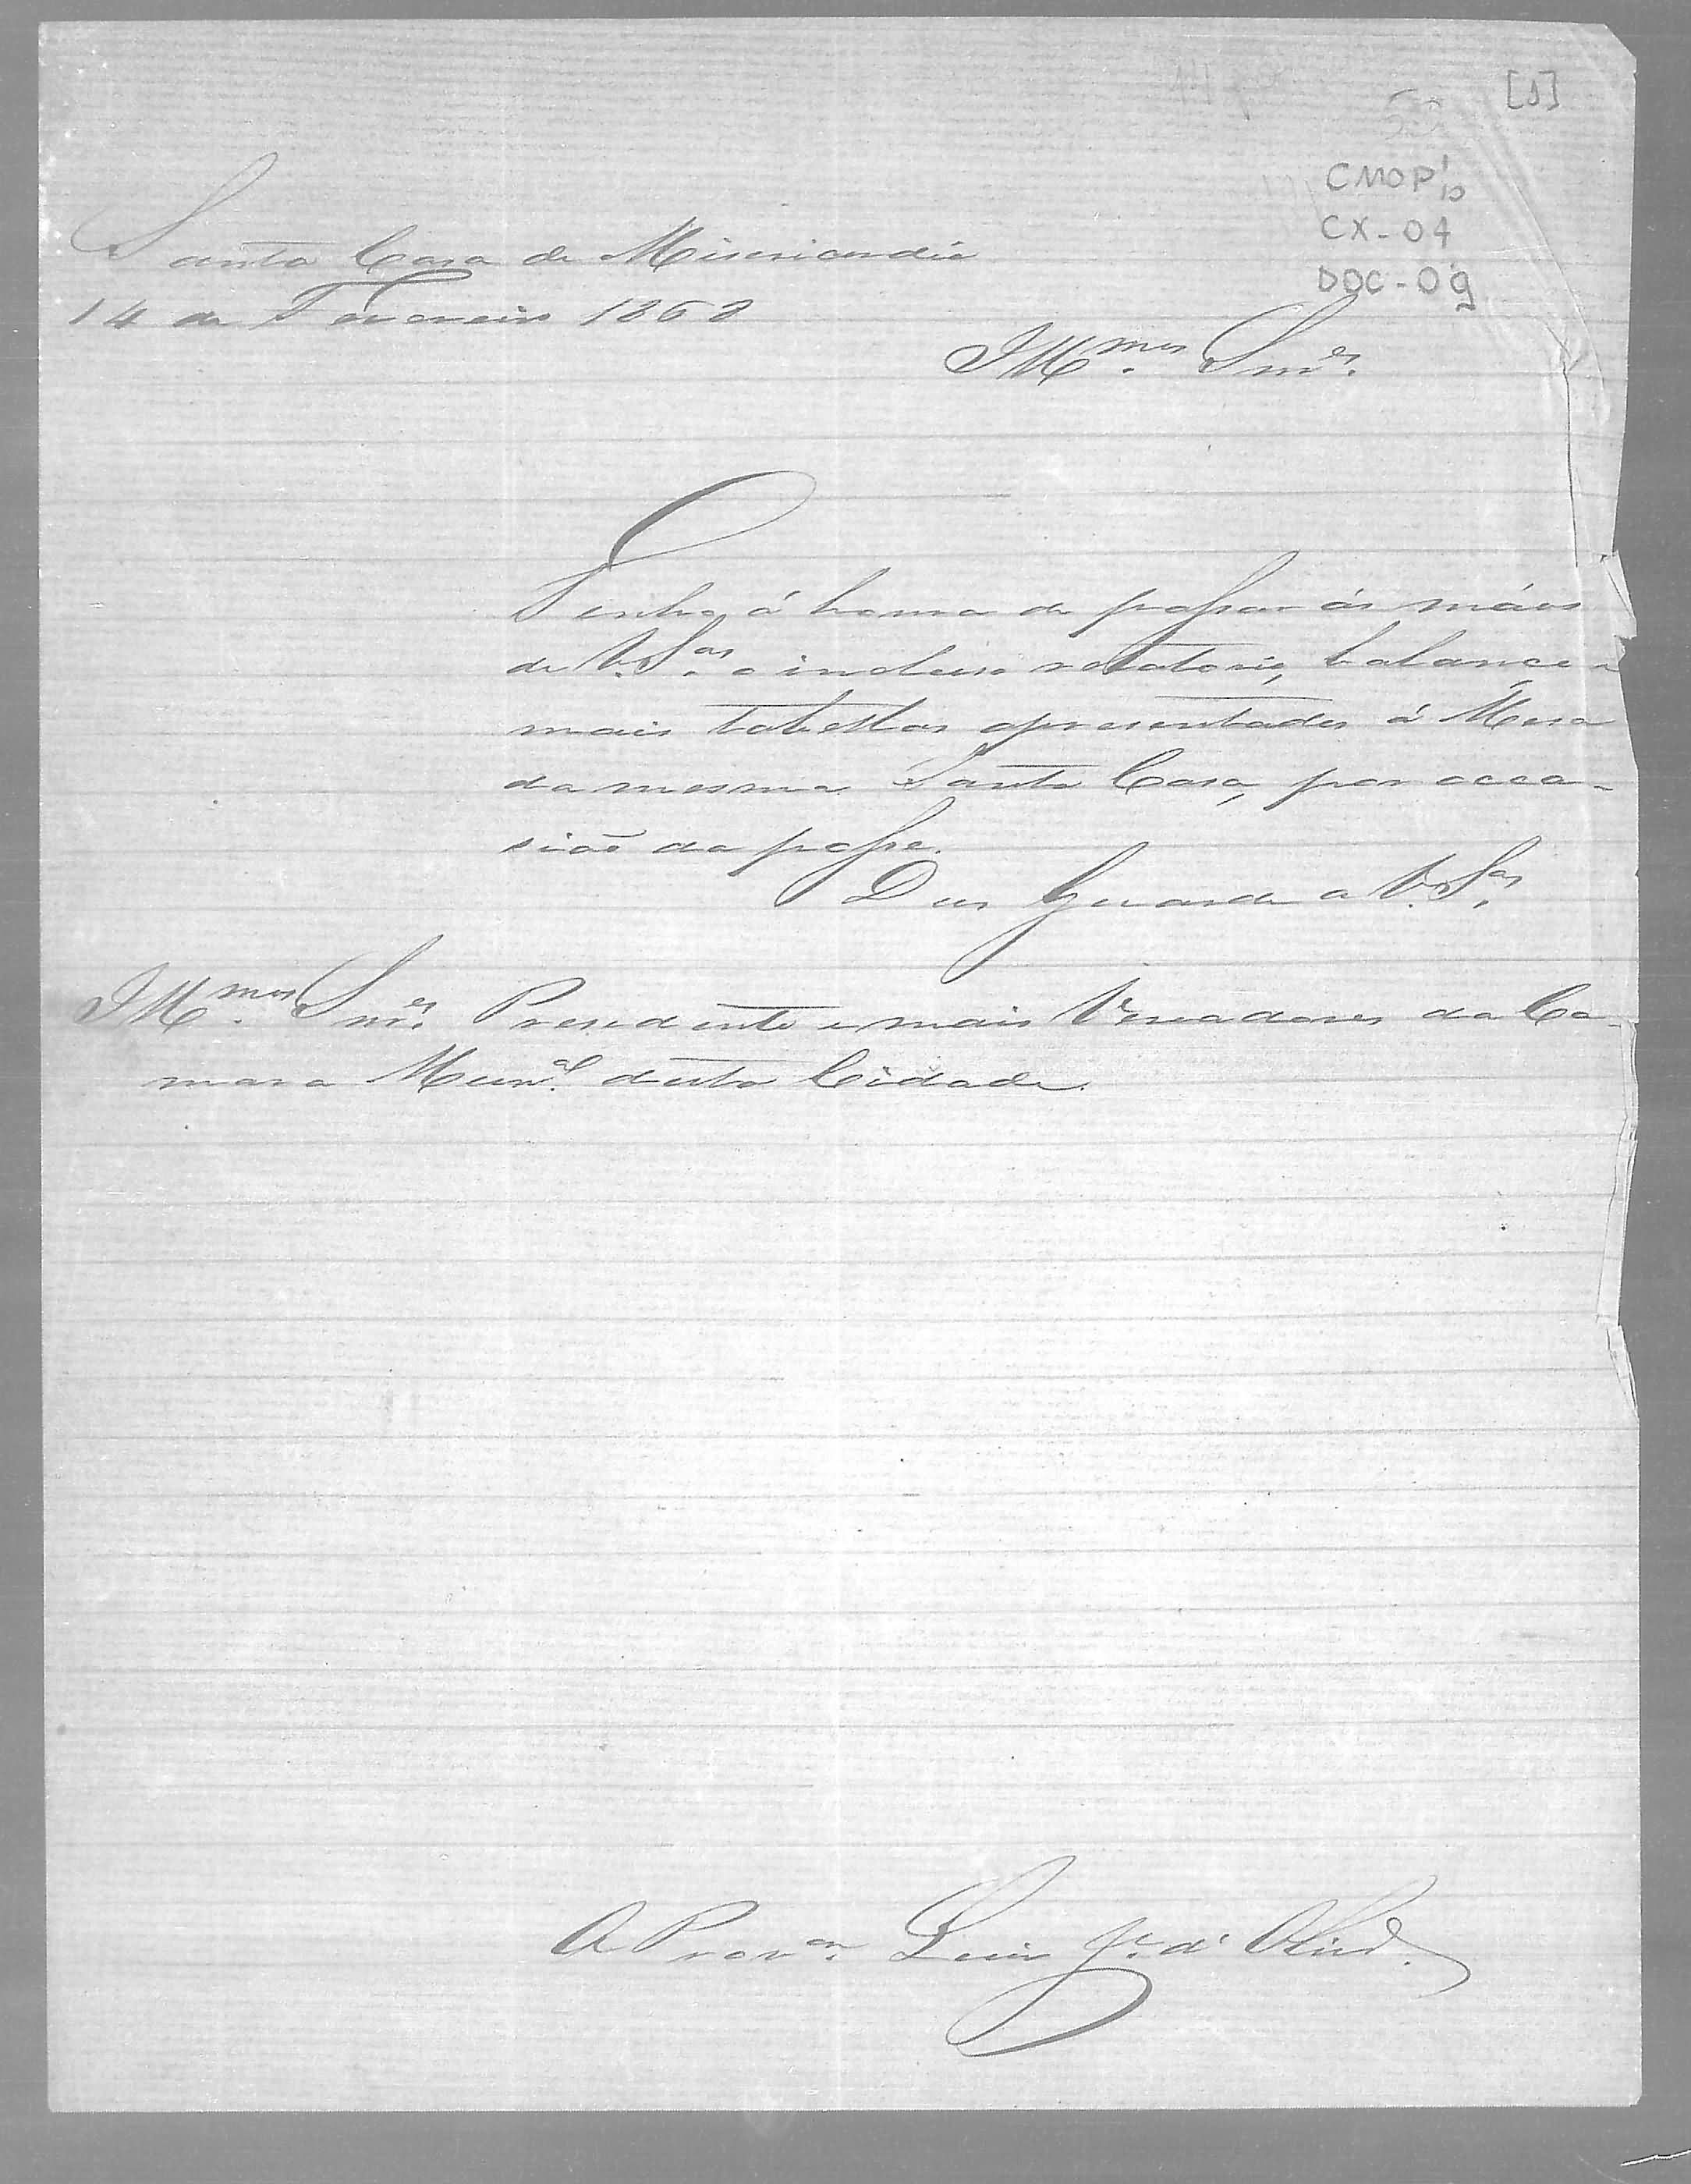 [1]
CMOP 1/10
CX-04
DOC-09
Santa Casa de Misericordia
14 de Fevereiro 1868
Illmos. Snres.
Tenho á honra de passar ás mãos
de V.Sas. o incluso relatorio, balanço e
mais tabellas apresentadas á Mesa
da mesma Santa Casa, por occa-
sião da posse.
Deus Guarde a V.Sas.
Illmos. Snres. Presidente e mais Vereadores da Ca-
mara Munal. desta Cidade.
O Provor. Luis Je. d' Olivra.